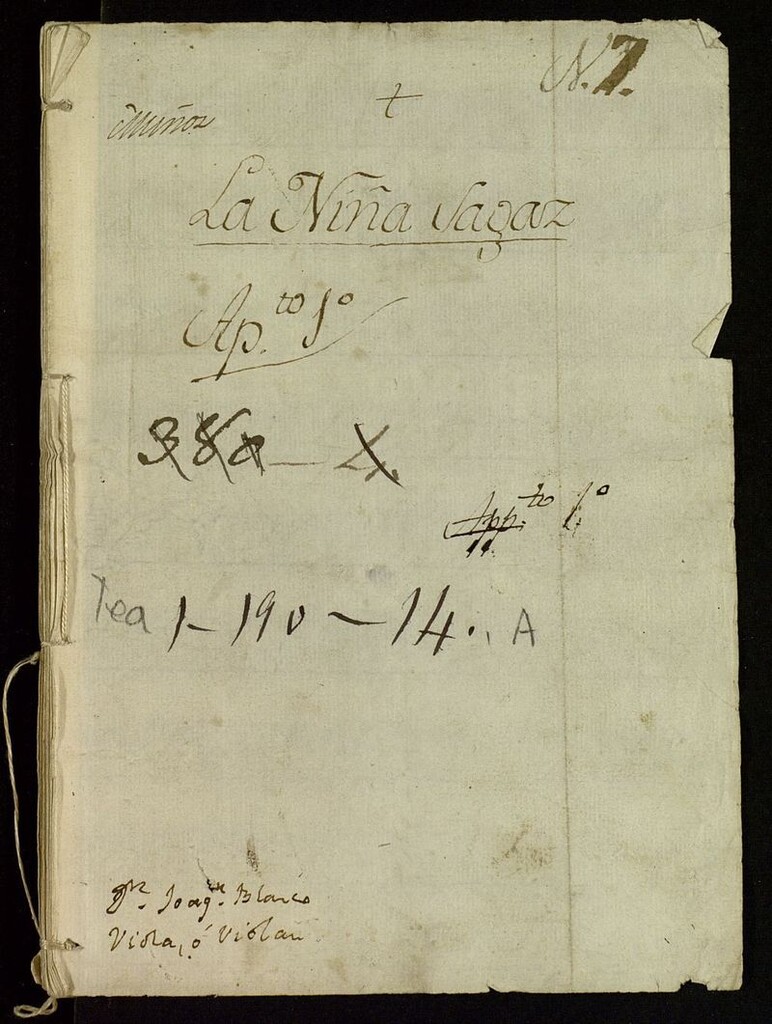 N. 7.
+
Muñoz
La Niña Sagaz
Ap.to 1º
380 - 4
App.to 1º
Tea 1-190-14., A
Joaqn. Blanco
Viola, ó Violan